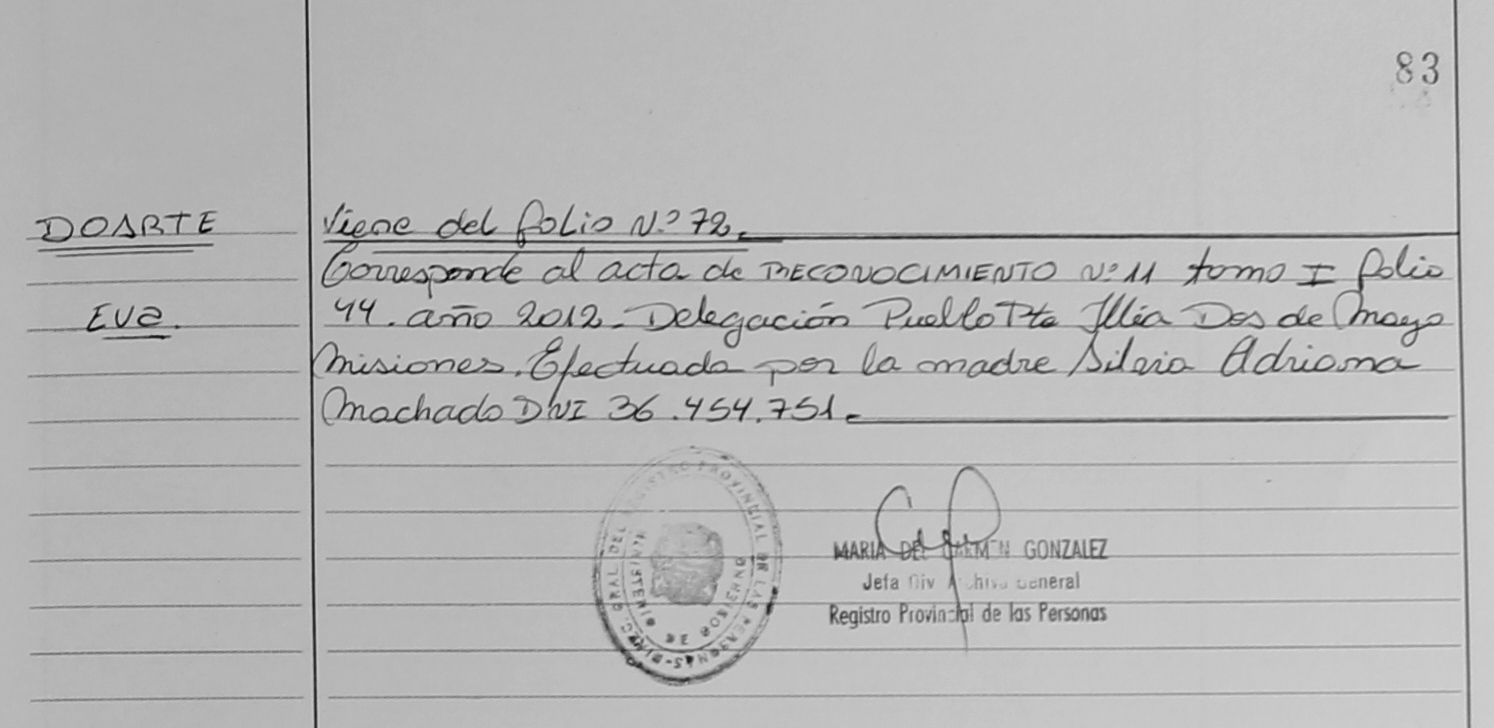 83
DOARTE
Viene del folio N.º 72.
Corresponde al acta de RECONOCIMIENTO Nº 11 tomo I folio
EVa.
44. año 2012 - Delegación Pueblo Pte Illia Dos de Mayo
Misiones. Efectuada por la madre Silvia Adriana
Machado DNI 36.454.751.
DIREC. GRAL DEL REGISTRO PROVINCIAL DE LAS PERSONAS
MINISTERIO DE GOBIERNO
MARIA DEL CARMEN GONZALEZ
Jefa Div Archivo General
Registro Provincial de las Personas